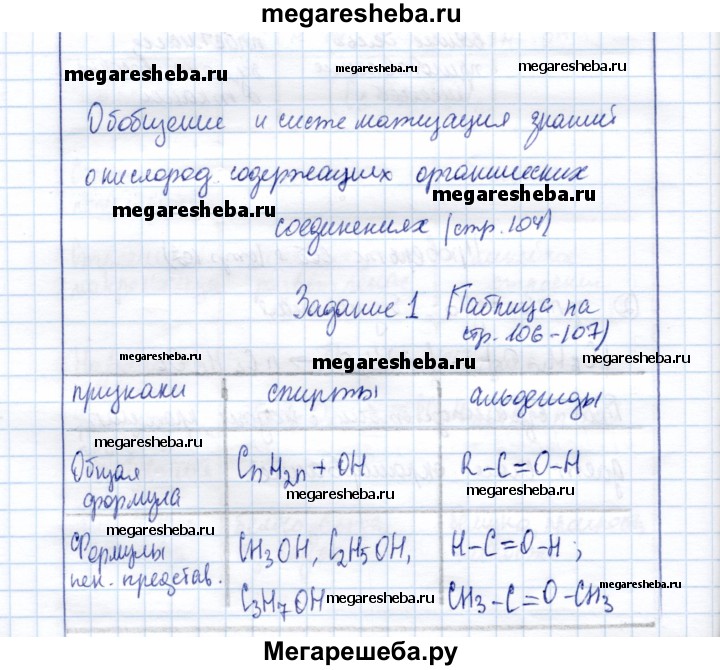 megaresheba.ru
megaresheba.ru megaresheba.ru megaresheba.ru
Обобщение и систематизация знаний
о кислород содержащих органических
megaresheba.ru
megaresheba.ru
соединениях (стр. 104)
Задание 1 (Таблица на
стр. 106-107)
megaresheba.ru megaresheba.ru megaresheba.ru
признаки спирты альдегиды
megaresheba.ru
Общая формула CnH2n + OH R-C=O-H
megaresheba.ru megaresheba.ru
megaresheba.ru
Формулы CH3OH, C2H5OH, H-C=O-H;
нек. представ. C3H7OH CH3-C=O-CH3
megaresheba.ru megaresheba.ru
Мегарешеба.ру